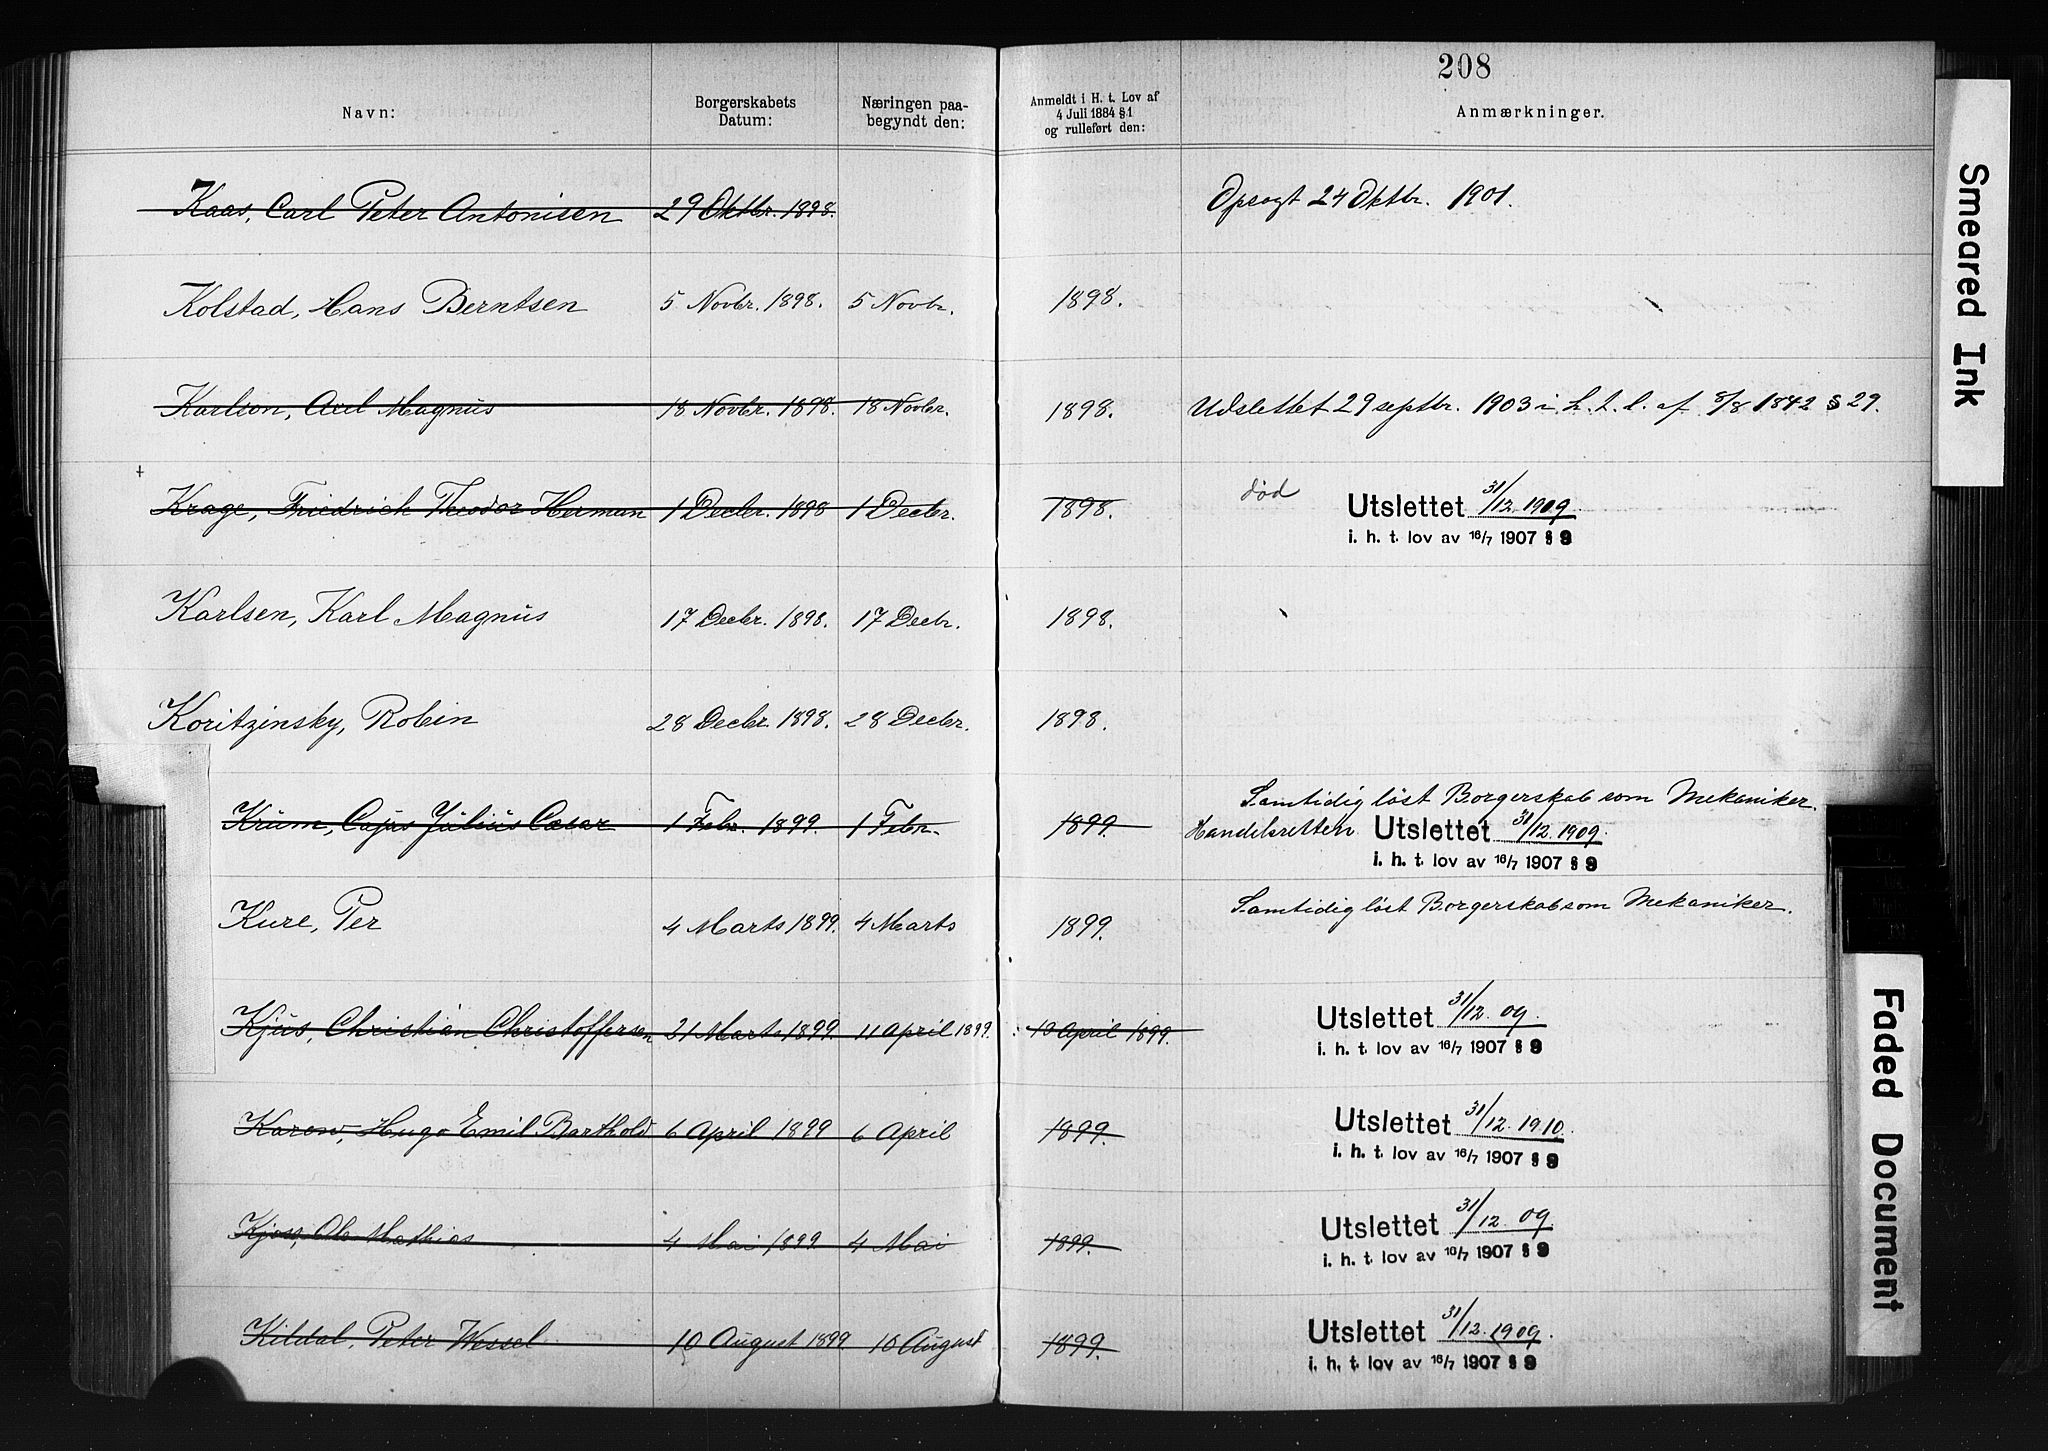 208
Navn: Borgerskabets Datum: Næringen paa-begyndt den: Anmeldt i H. t. Lov af 4 Juli 1884 § 1 og rulleført den: Anmærkninger.
Kaas, Carl Peter Antonisen 29 Oktbr. 1898. Opsagt 24 Oktbr. 1901.
Kolstad, Hans Berntsen 5 Novbr. 1898. 5 Novbr. 1898.
Karlson, Axel Magnus 18 Novbr. 1898. 18 Novbr. 1898. Udslettet 29 septbr. 1903 i h. t. l. af 8/8 1842 § 29.
Krage, Friedrich Theodor Herman 1 Decbr. 1898 1 Decbr. 1898. død Utslettet 31/12. 1909
i. h. t. lov av 16/7 1907 § 9
Karlsen, Karl Magnus 17 Decbr. 1898. 17 Decbr. 1898.
Koritzinsky, Robin 28 Decbr. 1898. 28 Decbr. 1898.
Samtidig løst Borgerskab som Mekaniker.
Krum, Cajus Julius Cæsar 1 Febr. 1899. 1 Febr. 1899. Handelsretten Utslettet 31/12. 1909.
i. h. t. lov av 16/7 1907 § 9
Kure, Per 4 Marts 1899. 4 Marts 1899. Samtidig løst Borgerskab som Mekaniker.
Kjus, Christian Christoffersen 21 Marts 1899. 11 April 1899. 10 April 1899. Utslettet 31/12. 09.
i. h. t. lov av 16/7 1907 § 9
Karew, Hugo Emil Barthold 6 April 1899 6 April 1899. Utslettet 31/12. 1910.
i. h. t. lov av 16/7 1907 § 9
Kjos, Ole Mathias 4 Mai 1899 4 Mai 1899. Utslettet 31/12. 09.
i. h. t. lov av 16/7 1907 § 9
Kildal, Peter Wessel 10 August 1899 10 August 1899. Utslettet 31/12. 1909.
i. h. t. lov av 16/7 1907 § 9
Smeared Ink
Faded Document